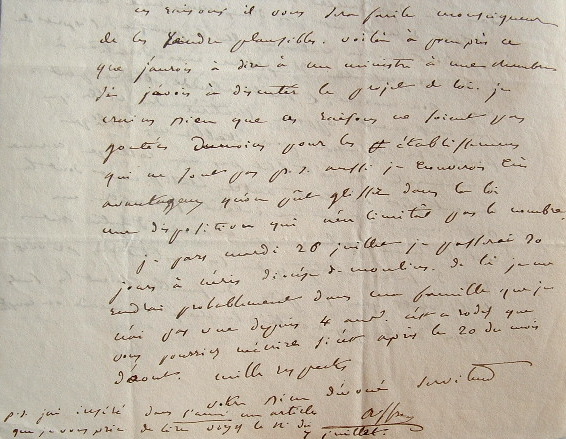 ces raisons il vous sera facile monseigneur
de les rendre plausibles. voilà à peu près ce
que j'aurois à dire à un ministre à une chambre
si j'avois à discuter le projet de loi. je
crains bien que ces raisons ne soient pas
goutées Dumoins pour les établissemens
qui ne sont pas p.s. aussi je trouverois très
avantageux qu'on pût glisser dans la loi
une disposition qui n'en limitât pas le nombre.
je pars mardi 26 juillet je passerai 20
jours à néris diocèse de moulins. de là je me
rendrai probablement dans ma famille que je
n'ai pas vue depuis 4 ans. c'est a rodez que
vous pourriez m'écrire si c'est après le 20 du mois
d'aout. mille respects
votre bien dévoué serviteur
affre
p.s. j'ai inséré dans l'ami un article
que je vous prie de lire voyez le n. du
7 juillet.